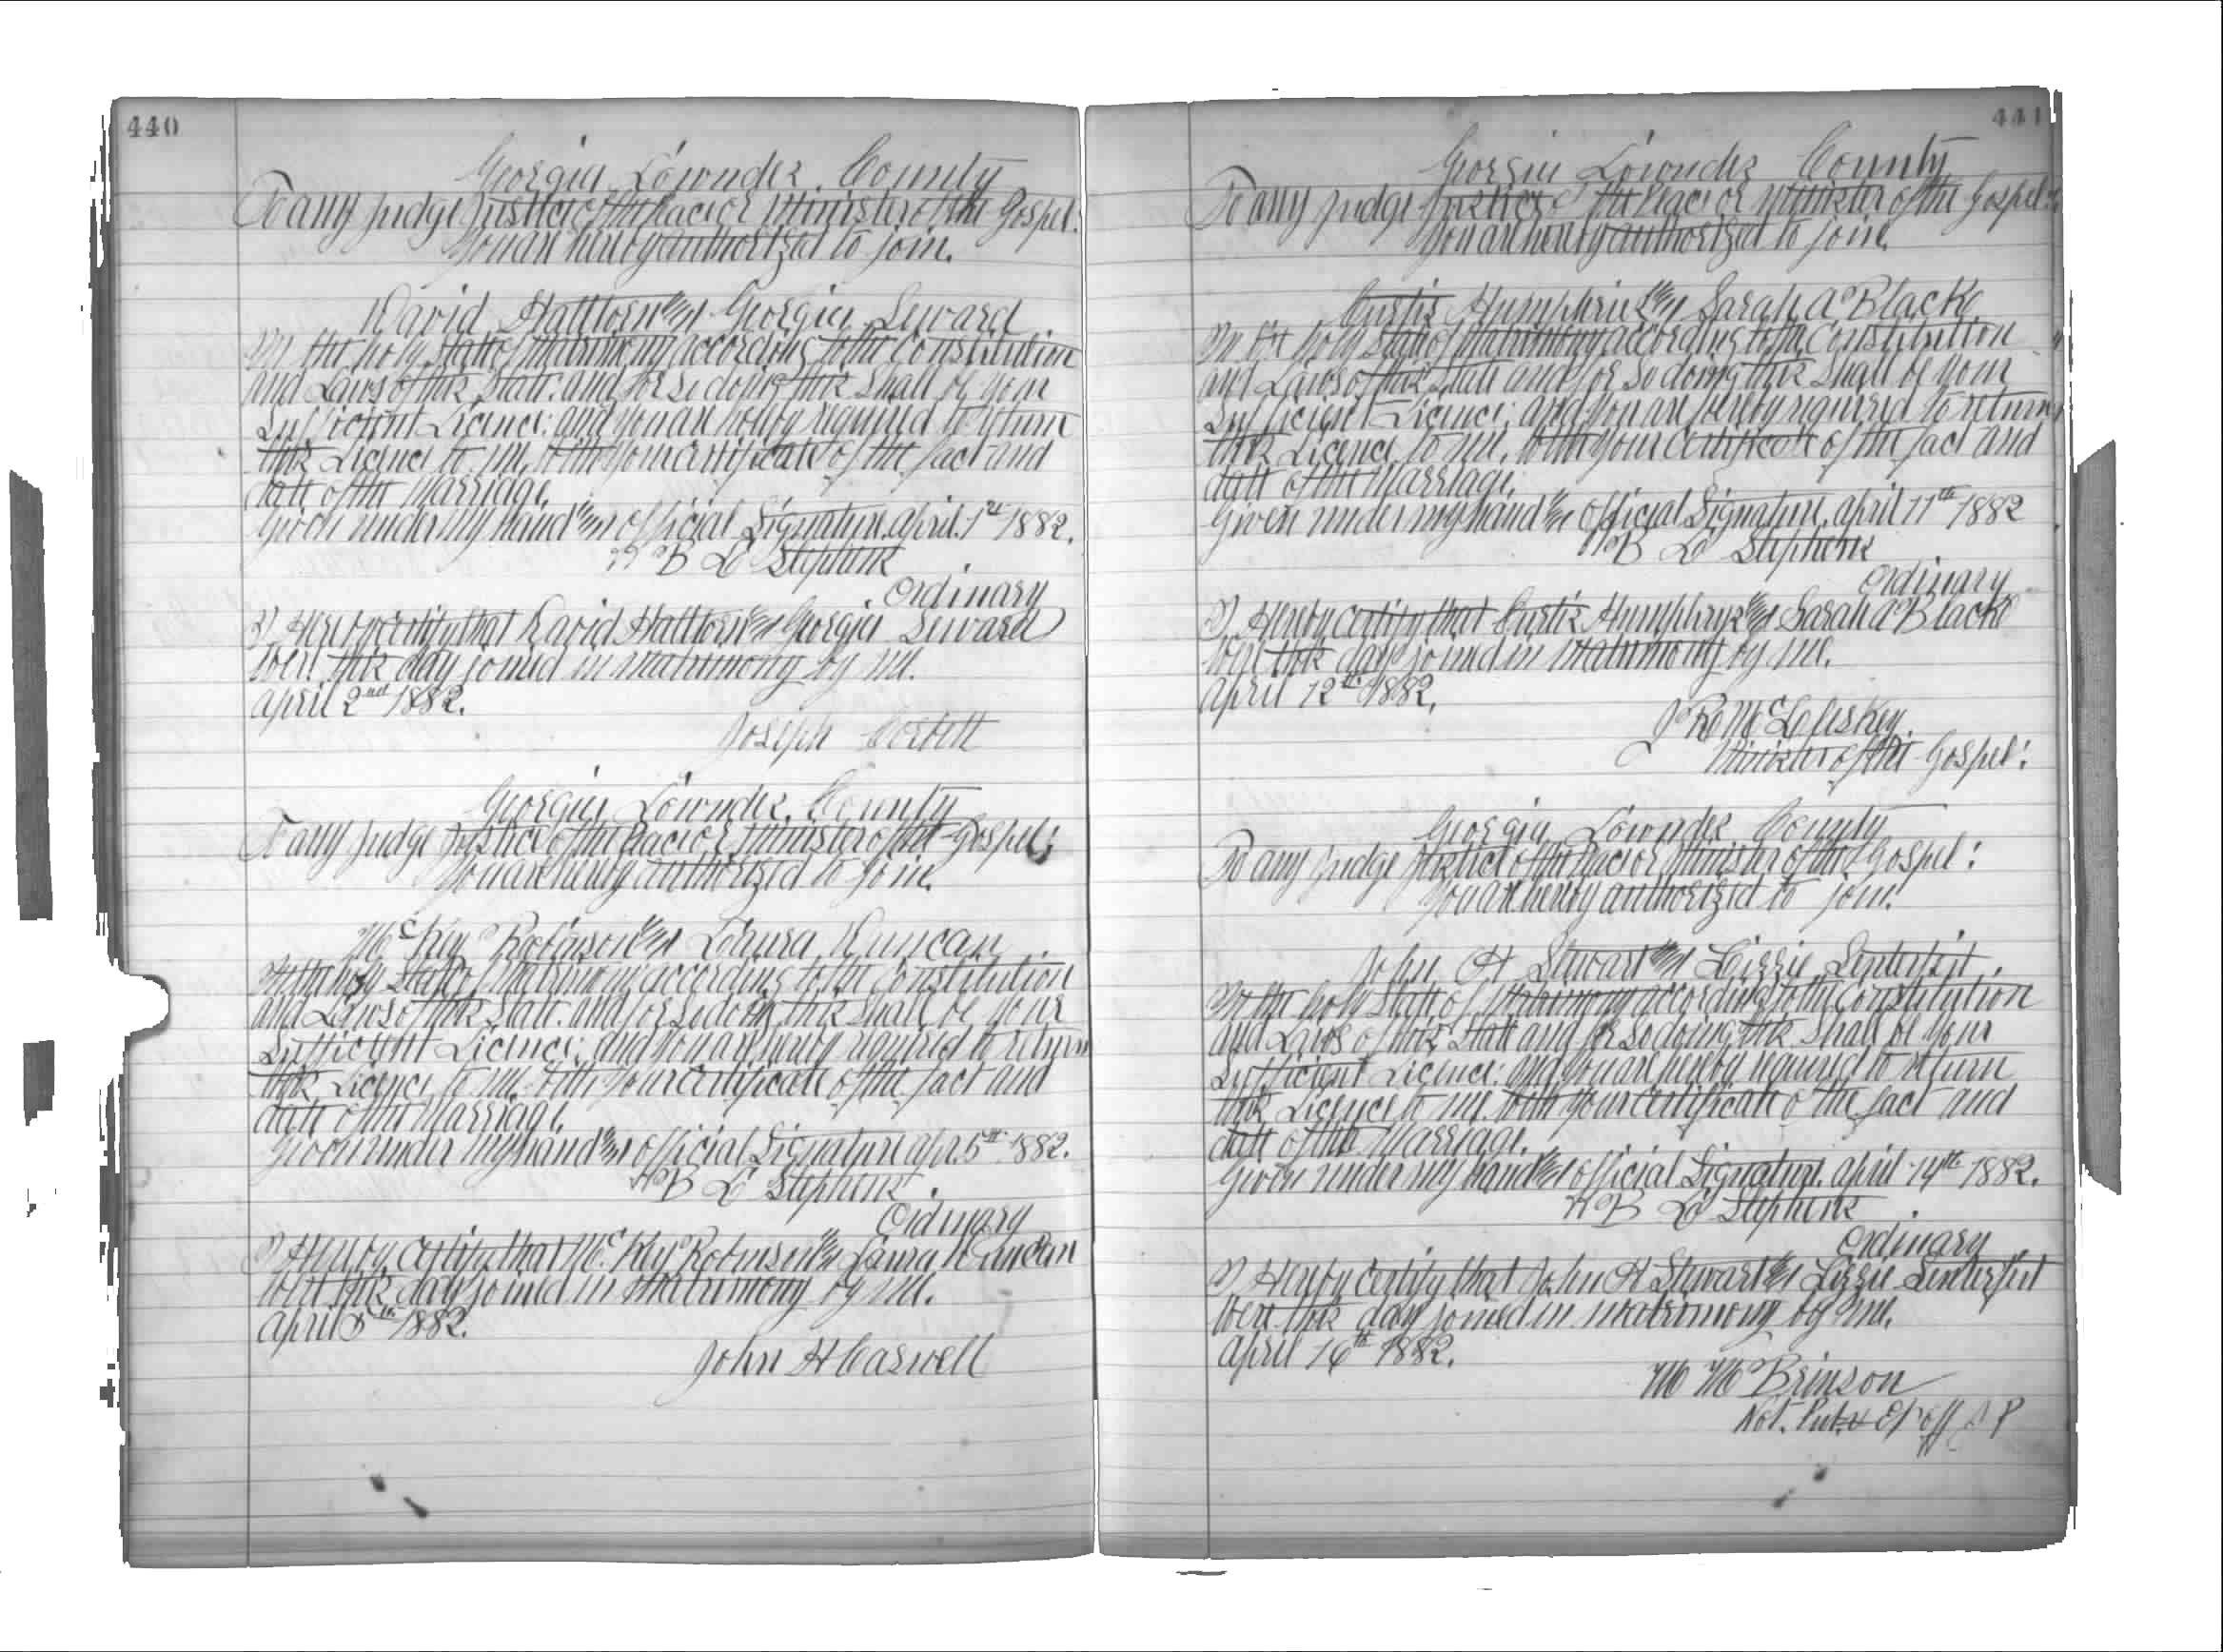 440
Georgia Lowndes County
To any Judge Justice of the Peace or Minister of the Gospel:
You are hereby authorized to join.
David Hattlorn and Georgia Seward
In the holy State of Matrimony according to the Constitution
and Laws of this State. and for so doing this shall be your
Sufficient Licence: and you are hereby required to return
this Licence to me, with your certificate of the fact and
date of the Marriage.
Given under my hand and official Signature. April. 1st 1882.
H B L Stephens
Ordinary
I Hereby certify that David Hattlorn and Georgia Seward
were this day joined in matrimony by me.
April 2nd 1882.
Joseph Corbett
Georgia Lowndes County
To any Judge Justice of the Peace or Minister of the Gospel:
You are hereby authorized to join.
McKey Robinson and Laura Duncan
In the holy State of Matrimony according to the Constitution
and Laws of this State. and for so doing this shall be your
Sufficient Licence; and you are hereby required to return
this Licence to me with your certificate of the fact and
date of the Marriage.
Given under my hand and official Signature Apr. 5th 1882.
H B L Stephens.
Ordinary
I Hereby certify that McKey Robinson and Laura Duncan
were this day joined in matrimony by me.
April 1882.
John H Caswell
441
Georgia Lowndes County
To any Judge Justice of the Peace or Minister of the Gospel:
You are hereby authorized to join.
Curtis Humphries and Sarah A Blacke
In the holy State of Matrimony according to the Constitution
and Laws of this State and for so doing this shall be your
Sufficient Licence; and you are hereby required to return
this Licence to me, with your Certificate of the fact and
date of the Marriage.
Given under my hand and official Signature. April 11th 1882
H B L Stephens
Ordinary
I, Hereby certify that Curtis Humphrys and Sarah A Blacke
were this day joined in matrimony by me.
April 12th 1882.
J R McCleskey
Minister of the Gospel:
Georgia Lowndes County
To any Judge Justice of the Peace or Minister of the Gospel:
You are hereby authorized to join.
John H Stewart and Lizzie Linterfit.
In the holy State of Matrimony according to the Constitution
and Laws of this State and for so doing this shall be your
Sufficient Licence: and you are hereby required to return
this Licence to me. with your certificate of the fact and
date of the Marriage.
Given under my hand and official Signature. April 14th 1882.
H B L Stephens
Ordinary
I Hereby certify that John H Stewart and Lizzie Linterfit
were this day joined in matrimony by me.
April 16th 1882.
M M Brinson
Not. Pub. & Ex off J P